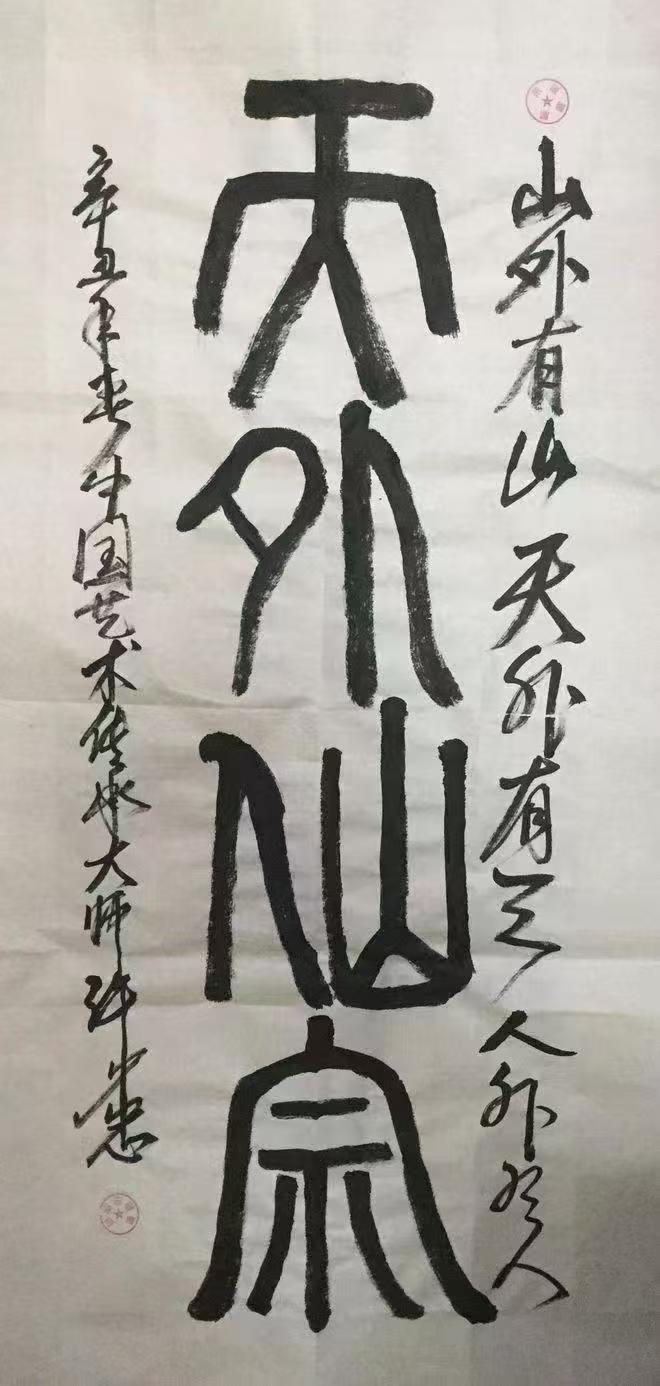 山外有山 天外有天 人外有人
天外仙宗
辛丑年春中国艺术传承大师许